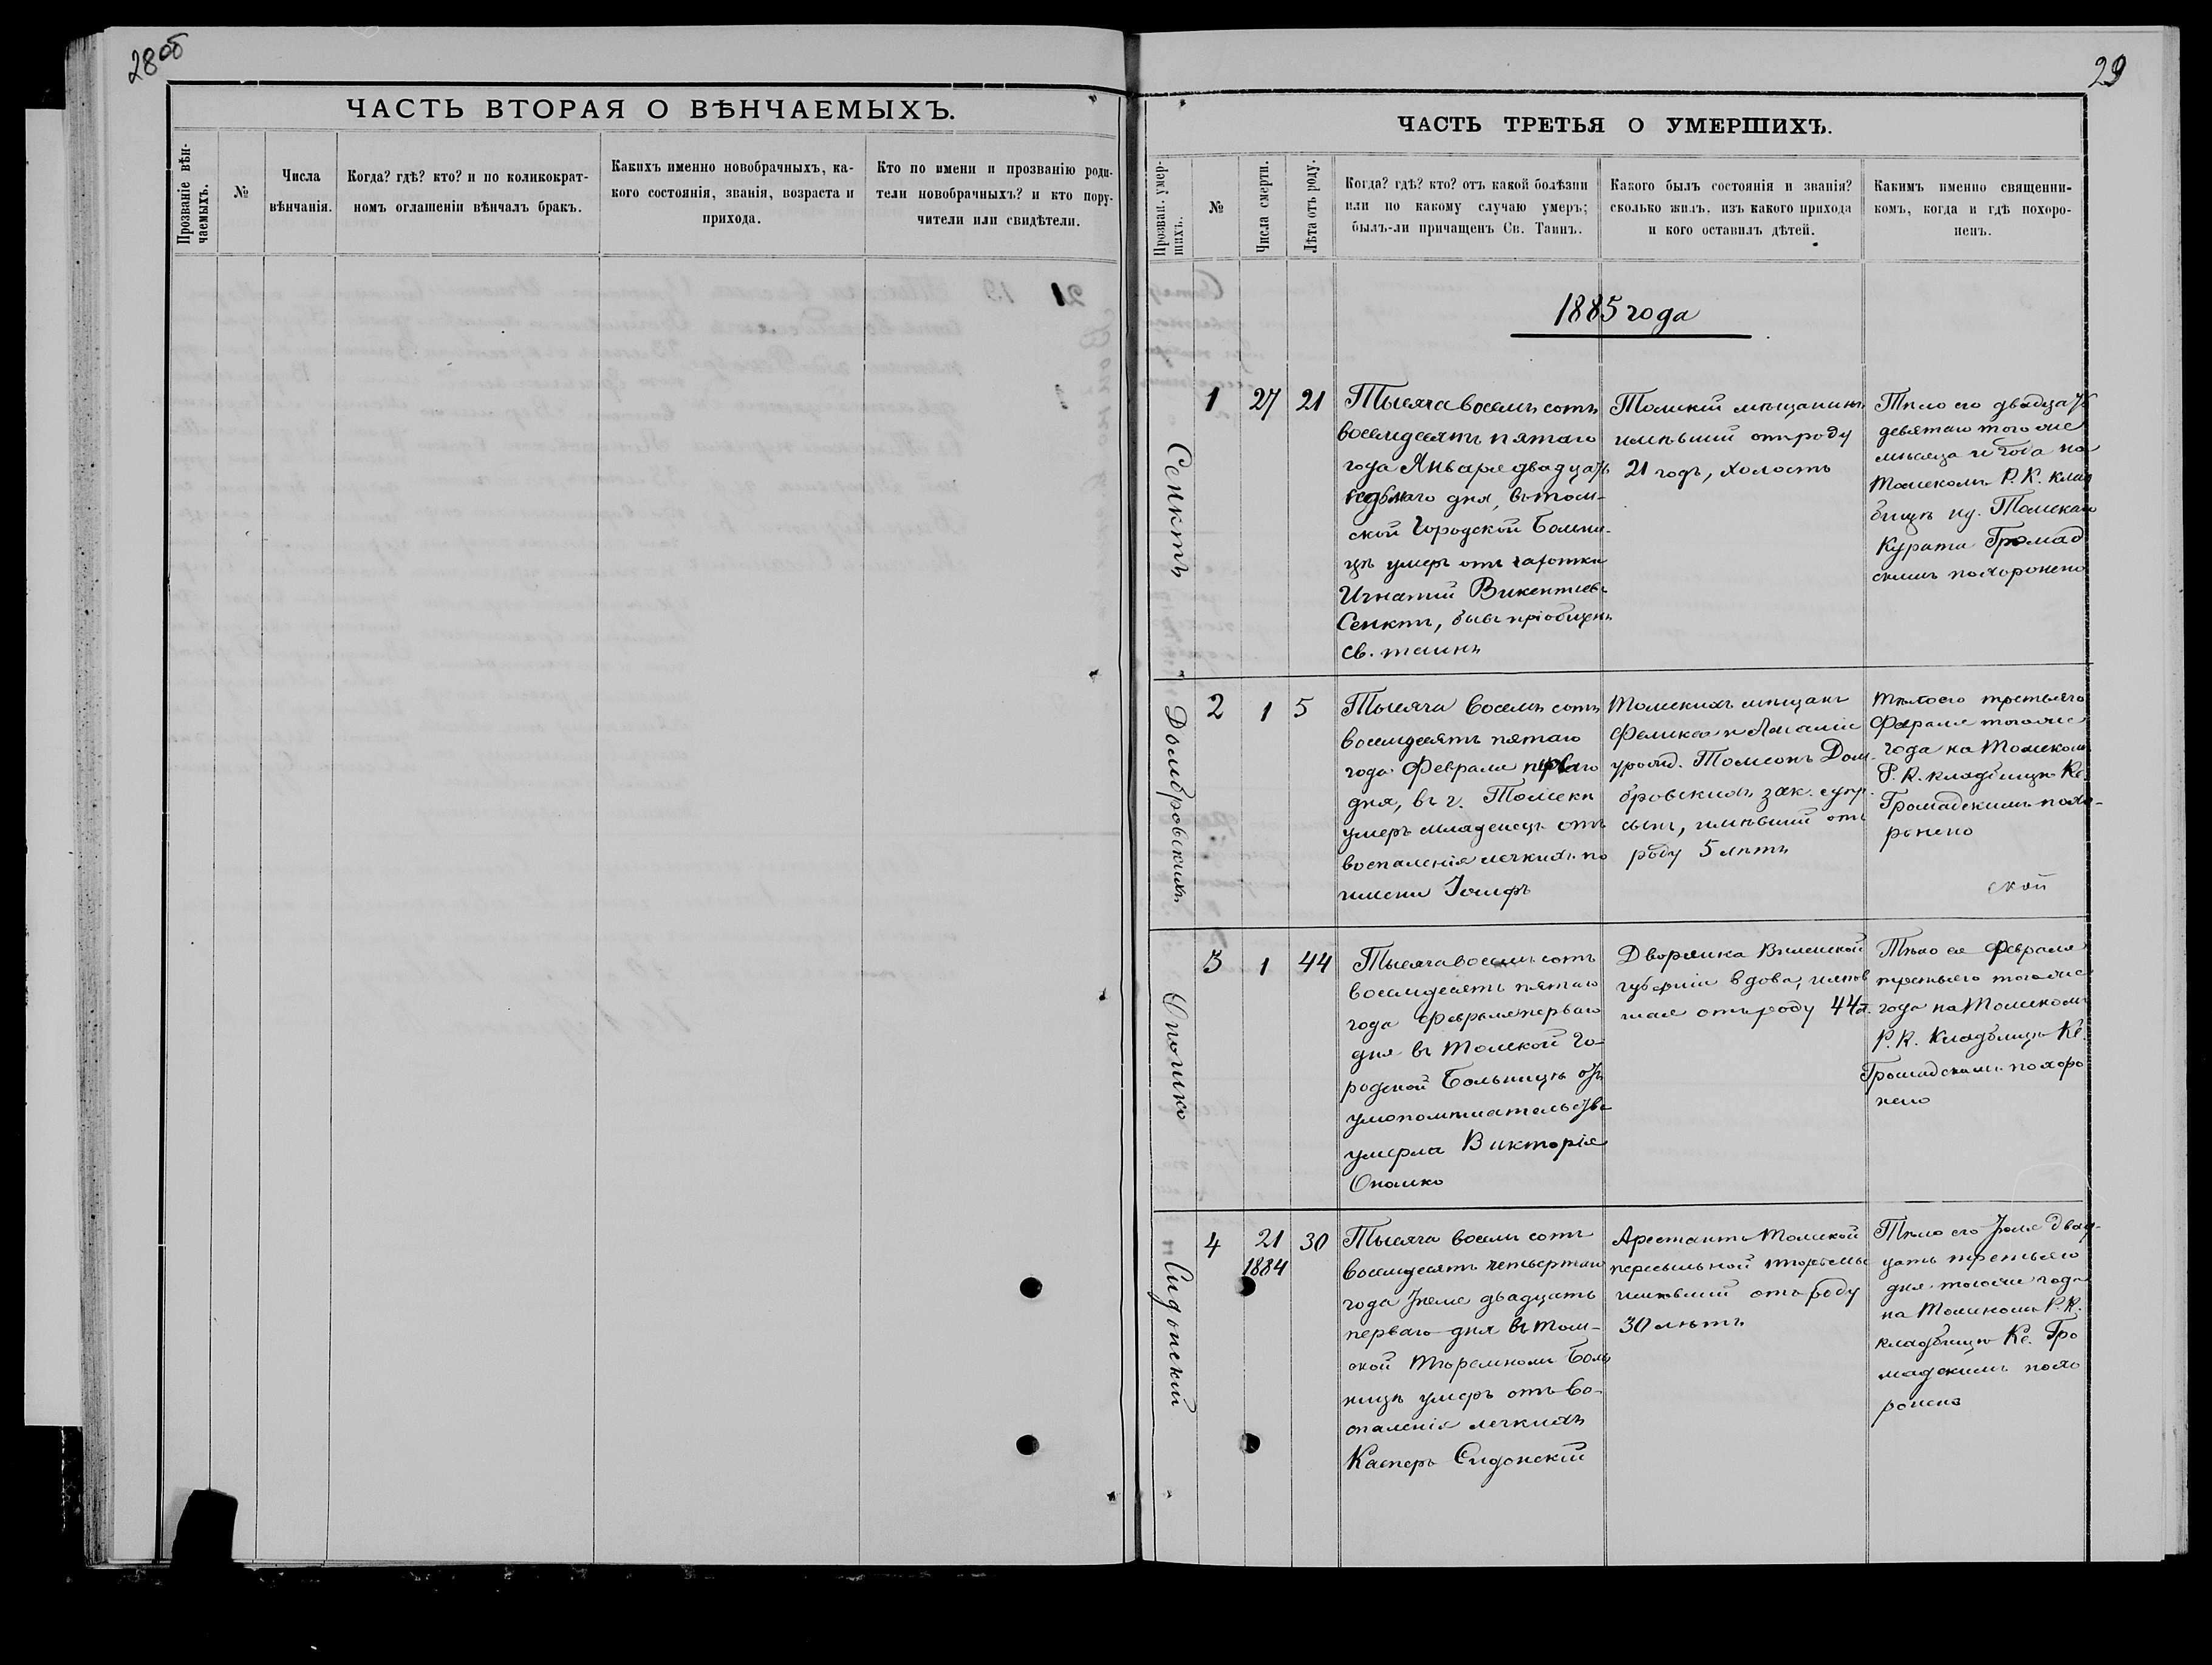 28об
ЧАСТЬ ВТОРАЯ О ВѢНЧАЕМЫХЪ.
Прозваніе вѣн-
чаемыхъ.
№
Числа
вѣнчанія.
Когда? гдѣ? кто? и по коликократ-
номъ оглашеніи вѣнчалъ бракъ.
Какихъ именно новобрачныхъ, ка-
кого состоянія, званія, возраста и
прихода.
Кто по имени и прозванію роди-
тели новобрачныхъ? и кто пору-
чители или свидѣтели.
29
ЧАСТЬ ТРЕТЬЯ О УМЕРШИХЪ.
Прозван. умер-
шихъ.
№
Числа смерти.
Лѣта отъ роду.
Когда? гдѣ? кто? отъ какой болѣзни
или по какому случаю умеръ;
былъ-ли причащенъ Св. Таинъ.
Какого былъ состоянія и званія?
сколько жилъ, изъ какого прихода
и кого оставилъ дѣтей.
Какимъ именно священни-
комъ, когда и гдѣ похоро-
ненъ.
1885 года
Сенктъ
1
27
21
Тысяча восемь сотъ
восемдесятъ пятаго
года Января двадцать
седьмаго дня, въ Том-
ской Городской Больни-
цѣ умеръ отъ чахотки
Игнатій Викентіевъ
Сенктъ, бывъ пріобщенъ
св. таинъ
Томскій мѣщанинъ
имѣвшій отъ роду
21 годъ, холостъ
Тѣло его двадцать
девятаго того же
мѣсяца и года на
Томскомъ Р. К. клад
бищѣ Томскимъ
Куратомъ Громад
скимъ похоронено
Домбровскихъ
2
1
5
Тысяча восемь сотъ
восемдесятъ пятаго
года Февраля перваго
дня, въ г. Томскѣ
умеръ младенецъ отъ
воспаленія легкихъ по
имени Іосифъ
Томскихъ мѣщанъ
Феликса и
урожд. Томсонъ Дом-
бровскихъ зак. супр.
сынъ, имѣвшій отъ
роду 5 лѣтъ
Тѣло его третьяго
Февраля того же
года на Томскомъ
Р. К. кладбищѣ Кс.
Громадскимъ похо-
ронено
ской
Опошко
3
1
44
Тысяча восемь сотъ
восемдесятъ пятаго
года Февраля перваго
дня въ Томской Го-
родской Больницѣ отъ
умопомѣшательства
умерла Викторія
Опошко
Дворянка Виленской
губерніи вдова, имѣв
шая отъ роду 44 л.
Тѣло ея Февраля
третьяго того же
года на Томскомъ
Р. К. Кладбищѣ Кс.
Громадскимъ похоро
нено
Сидонскій
4
21
1884
30
Тысяча восемь сотъ
восемдесятъ четвертаго
года двадцать
перваго дня въ Том-
ской Тюремной Боль
ницѣ умеръ отъ во-
спаленія легкихъ
Касперъ Сидонскій
Арестантъ Томской
пересыльной тюрьмы
имѣвшій отъ роду
30 лѣтъ
Тѣло его двад-
цать третьяго
дня того же года
на Томскомъ Р. К.
кладбищѣ Кс. Гро
мадскимъ похо
ронено